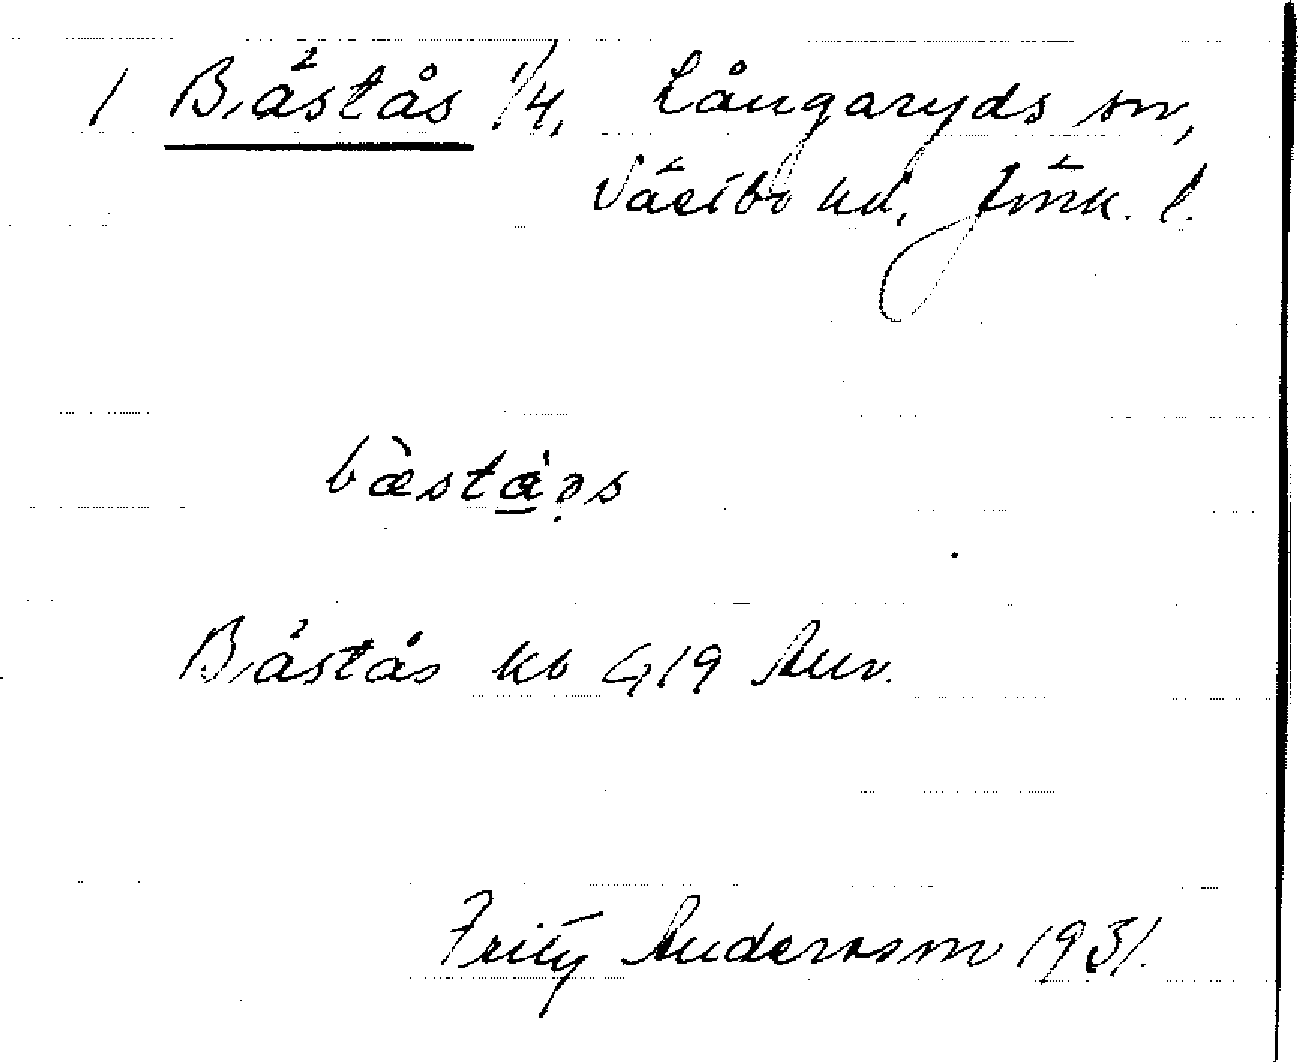 1 Bästås 1/4, Långaryds sn,
Västbo hd, Jönk. l.
bæstås
Bästås kb G19 Aur.
Fritz Andersson 1931.